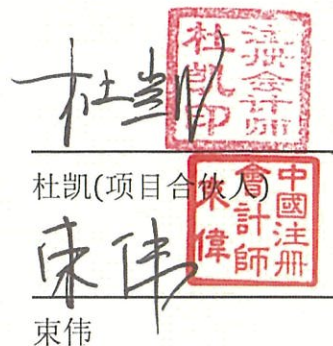 杜凯
注册会计师
杜凯印
杜凯(项目合伙人)
束伟
中國注册
會計師
束偉
束伟